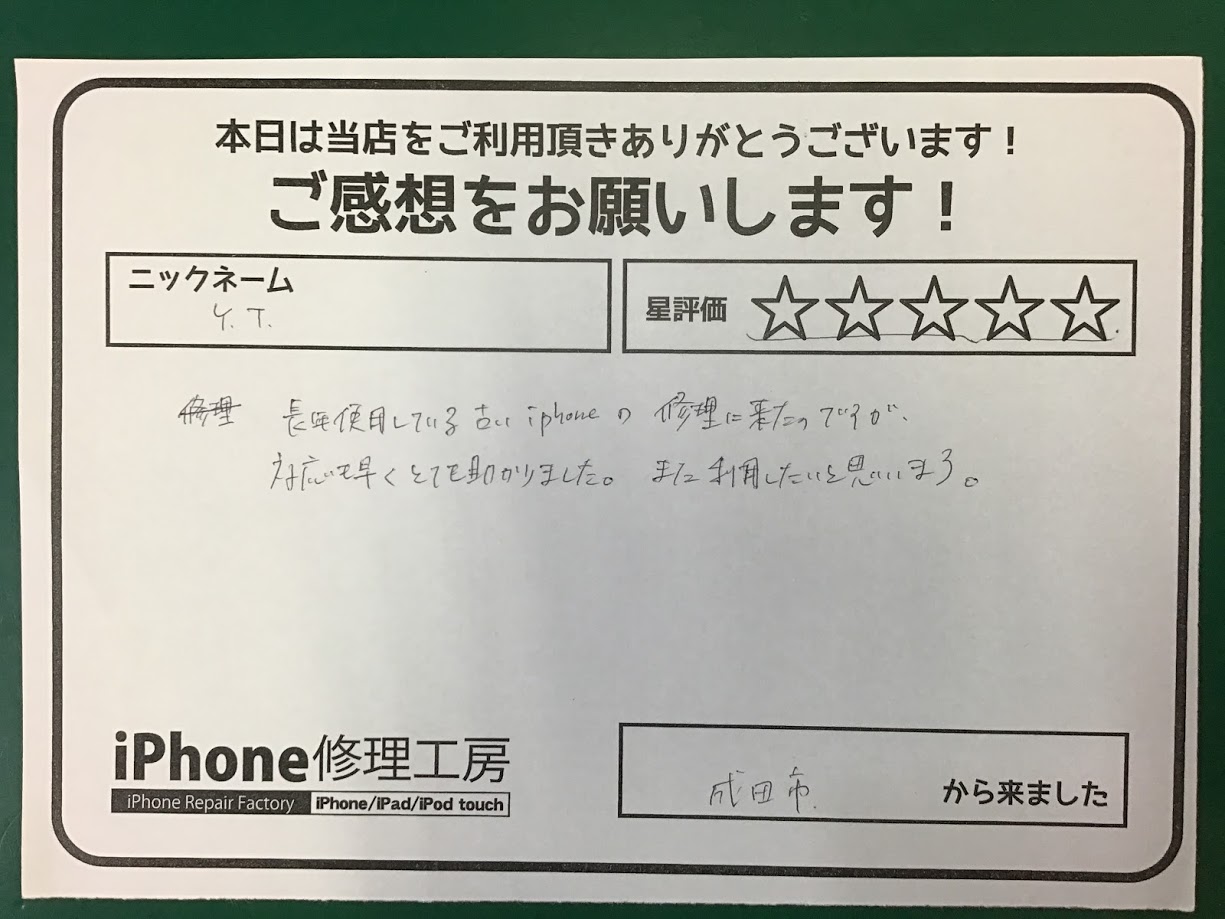 本日は当店をご利用頂きありがとうございます！
ご感想をお願いします！
ニックネーム
Y. T.
星評価
修理 長年使用している古い iphone の 修理に来たのですが、
対応も早くとても助かりました。 また利用したいと思います。
iPhone修理工房
iPhone Repair Factory iPhone/iPad/iPod touch
成田市 から来ました